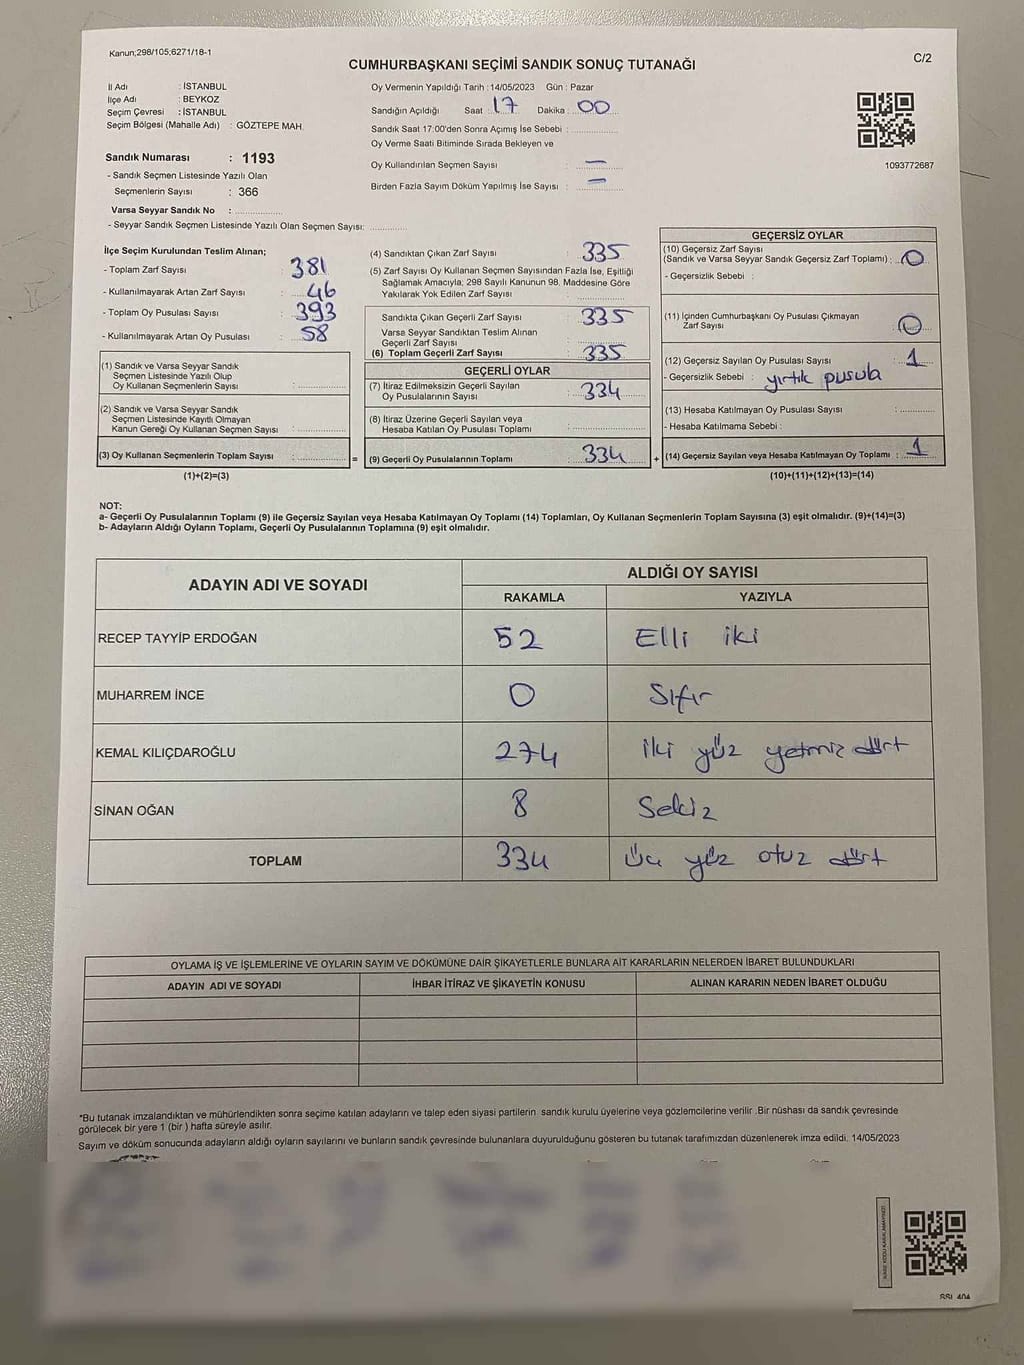 Kanun;298/105;6271/18-1
CUMHURBAŞKANI SEÇİMİ SANDIK SONUÇ TUTANAĞI
C/2
İl Adı : İSTANBUL
İlçe Adı : BEYKOZ
Seçim Çevresi : İSTANBUL
Seçim Bölgesi (Mahalle Adı) : GÖZTEPE MAH.
Sandık Numarası : 1193
- Sandık Seçmen Listesinde Yazılı Olan
Seçmenlerin Sayısı : 366
Varsa Seyyar Sandık No :
- Seyyar Sandık Seçmen Listesinde Yazılı Olan Seçmen Sayısı:
Oy Vermenin Yapıldığı Tarih :14/05/2023 Gün : Pazar
Sandığın Açıldığı Saat : 17 Dakika : 00
Sandık Saat 17:00'den Sonra Açımış İse Sebebi :
Oy Verme Saati Bitiminde Sırada Bekleyen ve
Oy Kullandırılan Seçmen Sayısı : —
Birden Fazla Sayım Döküm Yapılmış İse Sayısı : —
1093772687
İlçe Seçim Kurulundan Teslim Alınan;
- Toplam Zarf Sayısı : 381
- Kullanılmayarak Artan Zarf Sayısı : 46
- Toplam Oy Pusulası Sayısı : 393
- Kullanılmayarak Artan Oy Pusulası : 58
(1) Sandık ve Varsa Seyyar Sandık
Seçmen Listesinde Yazılı Olup
Oy Kullanan Seçmenlerin Sayısı :
(2) Sandık ve Varsa Seyyar Sandık
Seçmen Listesinde Kayıtlı Olmayan
Kanun Gereği Oy Kullanan Seçmen Sayısı :
(3) Oy Kullanan Seçmenlerin Toplam Sayısı : =
(1)+(2)=(3)
(4) Sandıktan Çıkan Zarf Sayısı : 335
(5) Zarf Sayısı Oy Kullanan Seçmen Sayısından Fazla İse, Eşitliği
Sağlamak Amacıyla; 298 Sayılı Kanunun 98. Maddesine Göre
Yakılarak Yok Edilen Zarf Sayısı :
Sandıkta Çıkan Geçerli Zarf Sayısı : 335
Varsa Seyyar Sandıktan Teslim Alınan
Geçerli Zarf Sayısı :
(6) Toplam Geçerli Zarf Sayısı : 335
GEÇERLİ OYLAR
(7) İtiraz Edilmeksizin Geçerli Sayılan
Oy Pusulalarının Sayısı : 334
(8) İtiraz Üzerine Geçerli Sayılan veya
Hesaba Katılan Oy Pusulası Toplamı :
(9) Geçerli Oy Pusulalarının Toplamı : 334 +
GEÇERSİZ OYLAR
(10) Geçersiz Zarf Sayısı
(Sandık ve Varsa Seyyar Sandık Geçersiz Zarf Toplamı) : 0
- Geçersizlik Sebebi :
(11) İçinden Cumhurbaşkanı Oy Pusulası Çıkmayan
Zarf Sayısı : 0
(12) Geçersiz Sayılan Oy Pusulası Sayısı : 1
- Geçersizlik Sebebi : yırtık pusula
(13) Hesaba Katılmayan Oy Pusulası Sayısı :
- Hesaba Katılmama Sebebi :
(14) Geçersiz Sayılan veya Hesaba Katılmayan Oy Toplamı : 1
(10)+(11)+(12)+(13)=(14)
NOT:
a- Geçerli Oy Pusulalarının Toplamı (9) ile Geçersiz Sayılan veya Hesaba Katılmayan Oy Toplamı (14) Toplamları, Oy Kullanan Seçmenlerin Toplam Sayısına (3) eşit olmalıdır. (9)+(14)=(3)
b- Adayların Aldığı Oyların Toplamı, Geçerli Oy Pusulalarının Toplamına (9) eşit olmalıdır.
ADAYIN ADI VE SOYADI
ALDIĞI OY SAYISI
RAKAMLA YAZIYLA
RECEP TAYYİP ERDOĞAN 52 Elli iki
MUHARREM İNCE 0 Sıfır
KEMAL KILIÇDAROĞLU 274 iki yüz yetmiz dört
SİNAN OĞAN 8 Sekiz
TOPLAM 334 Üç yüz otuz dört
OYLAMA İŞ VE İŞLEMLERİNE VE OYLARIN SAYIM VE DÖKÜMÜNE DAİR ŞİKAYETLERLE BUNLARA AİT KARARLARIN NELERDEN İBARET BULUNDUKLARI
ADAYIN ADI VE SOYADI İHBAR İTİRAZ VE ŞİKAYETİN KONUSU ALINAN KARARIN NEDEN İBARET OLDUĞU
*Bu tutanak imzalandıktan ve mühürlendikten sonra seçime katılan adayların ve talep eden siyasi partilerin sandık kurulu üyelerine veya gözlemcilerine verilir .Bir nüshası da sandık çevresinde
görülecek bir yere 1 (bir ) hafta süreyle asılır.
Sayım ve döküm sonucunda adayların aldığı oyların sayılarını ve bunların sandık çevresinde bulunanlara duyurulduğunu gösteren bu tutanak tarafımızdan düzenlenerek imza edildi. 14/05/2023